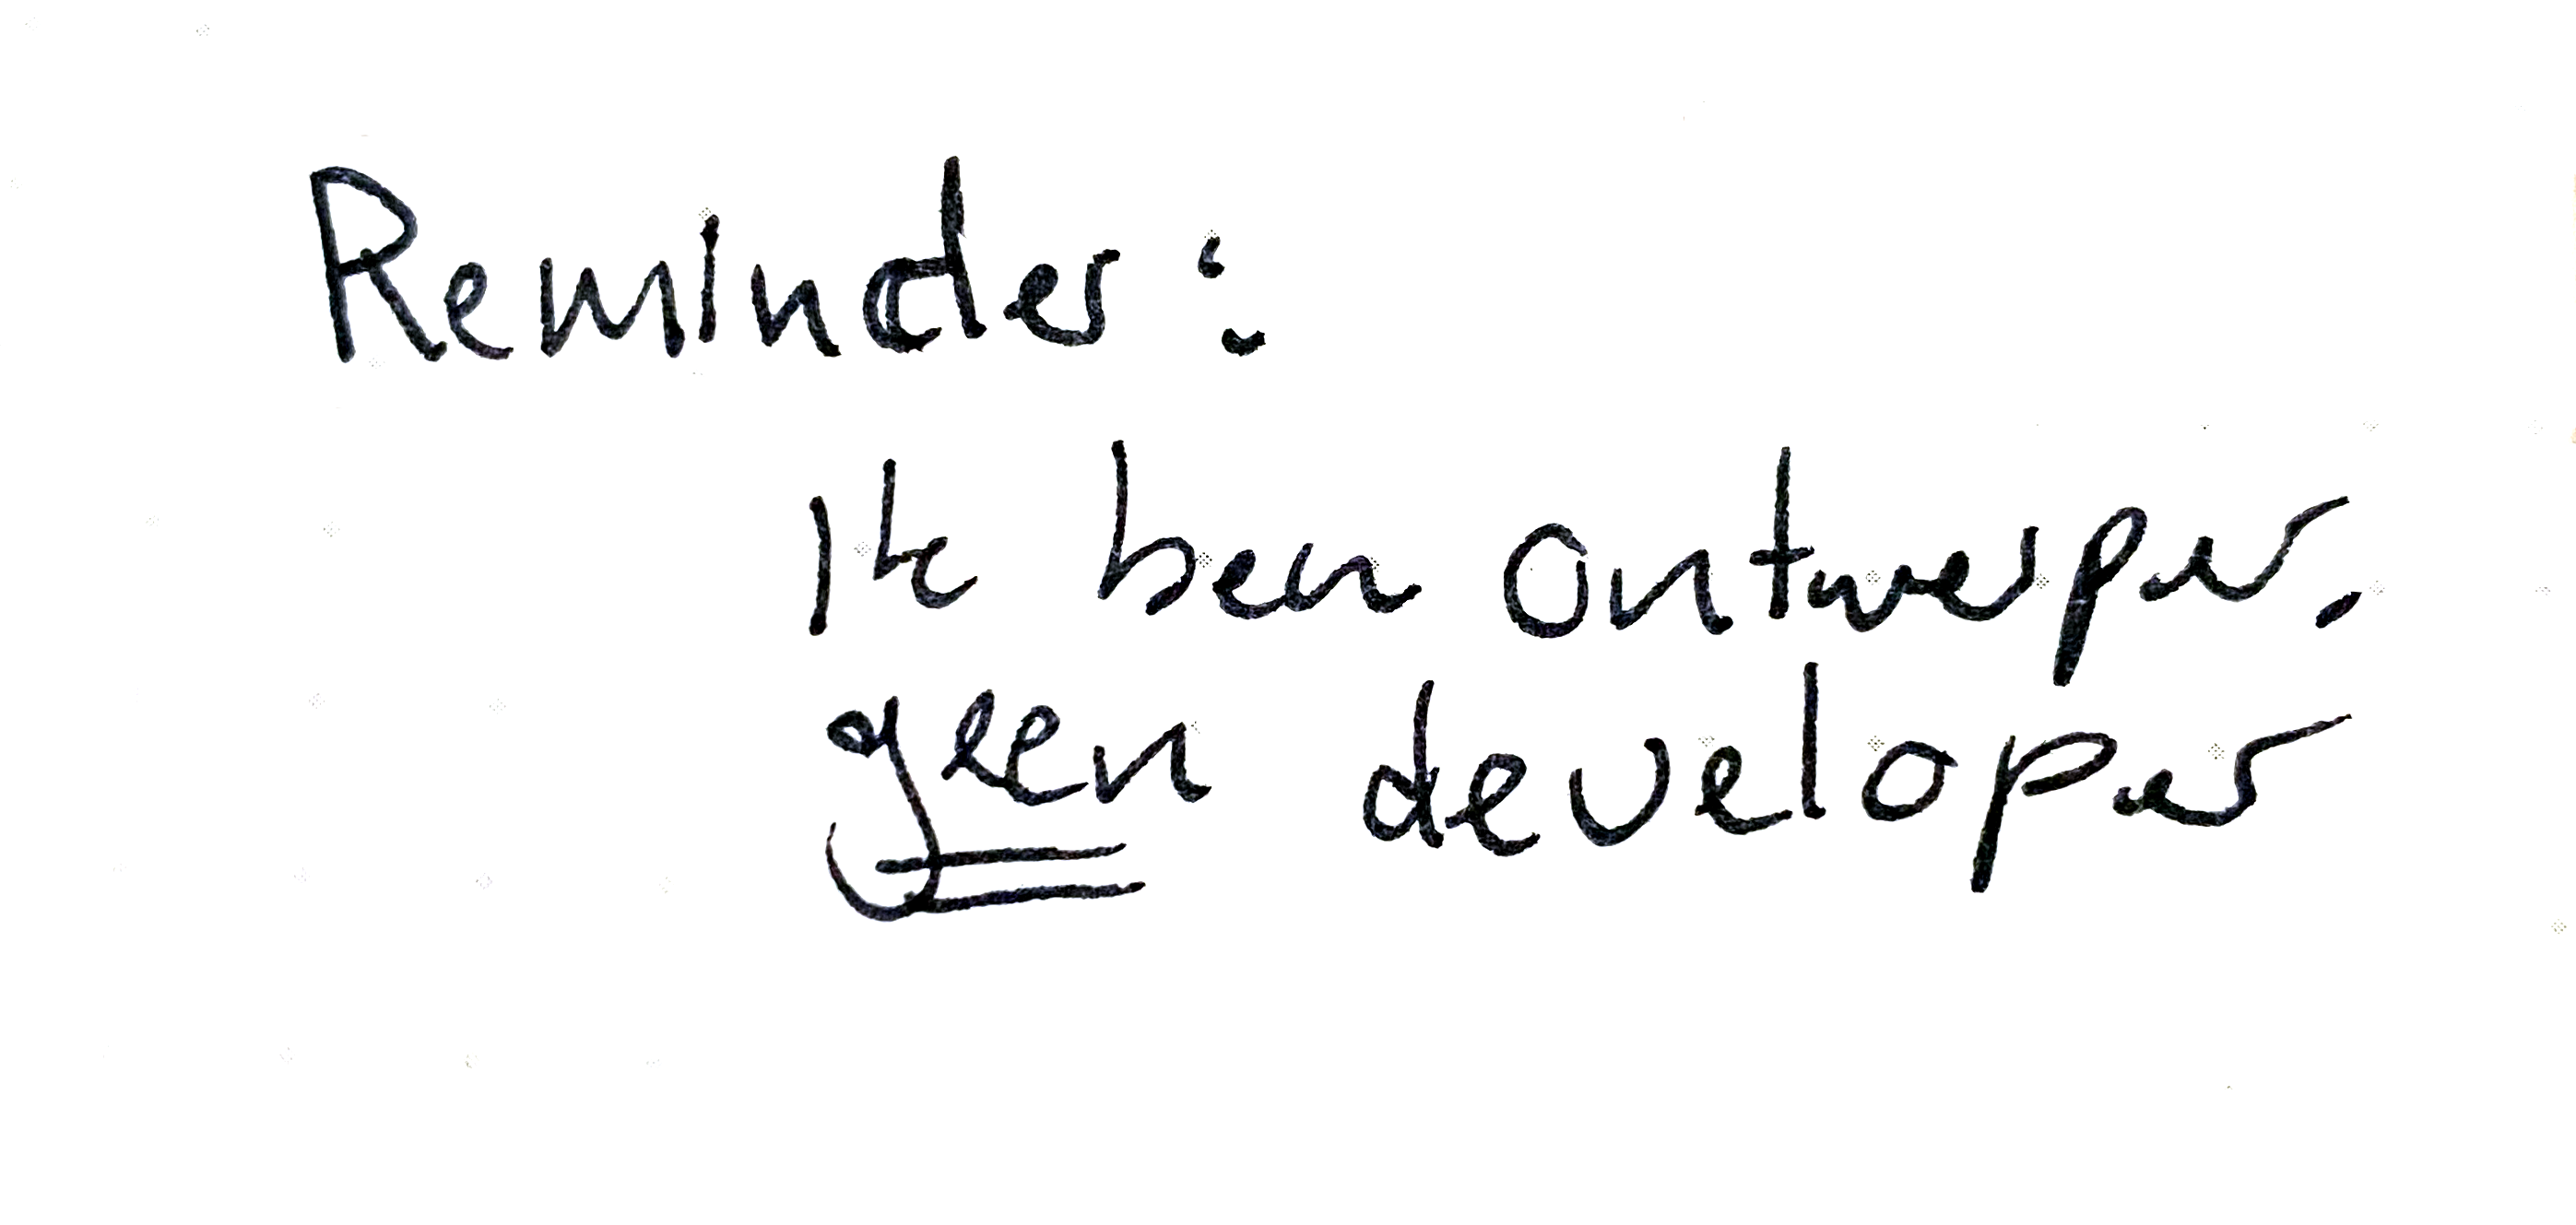 Reminder:
Ik ben ontwerper,
geen developer